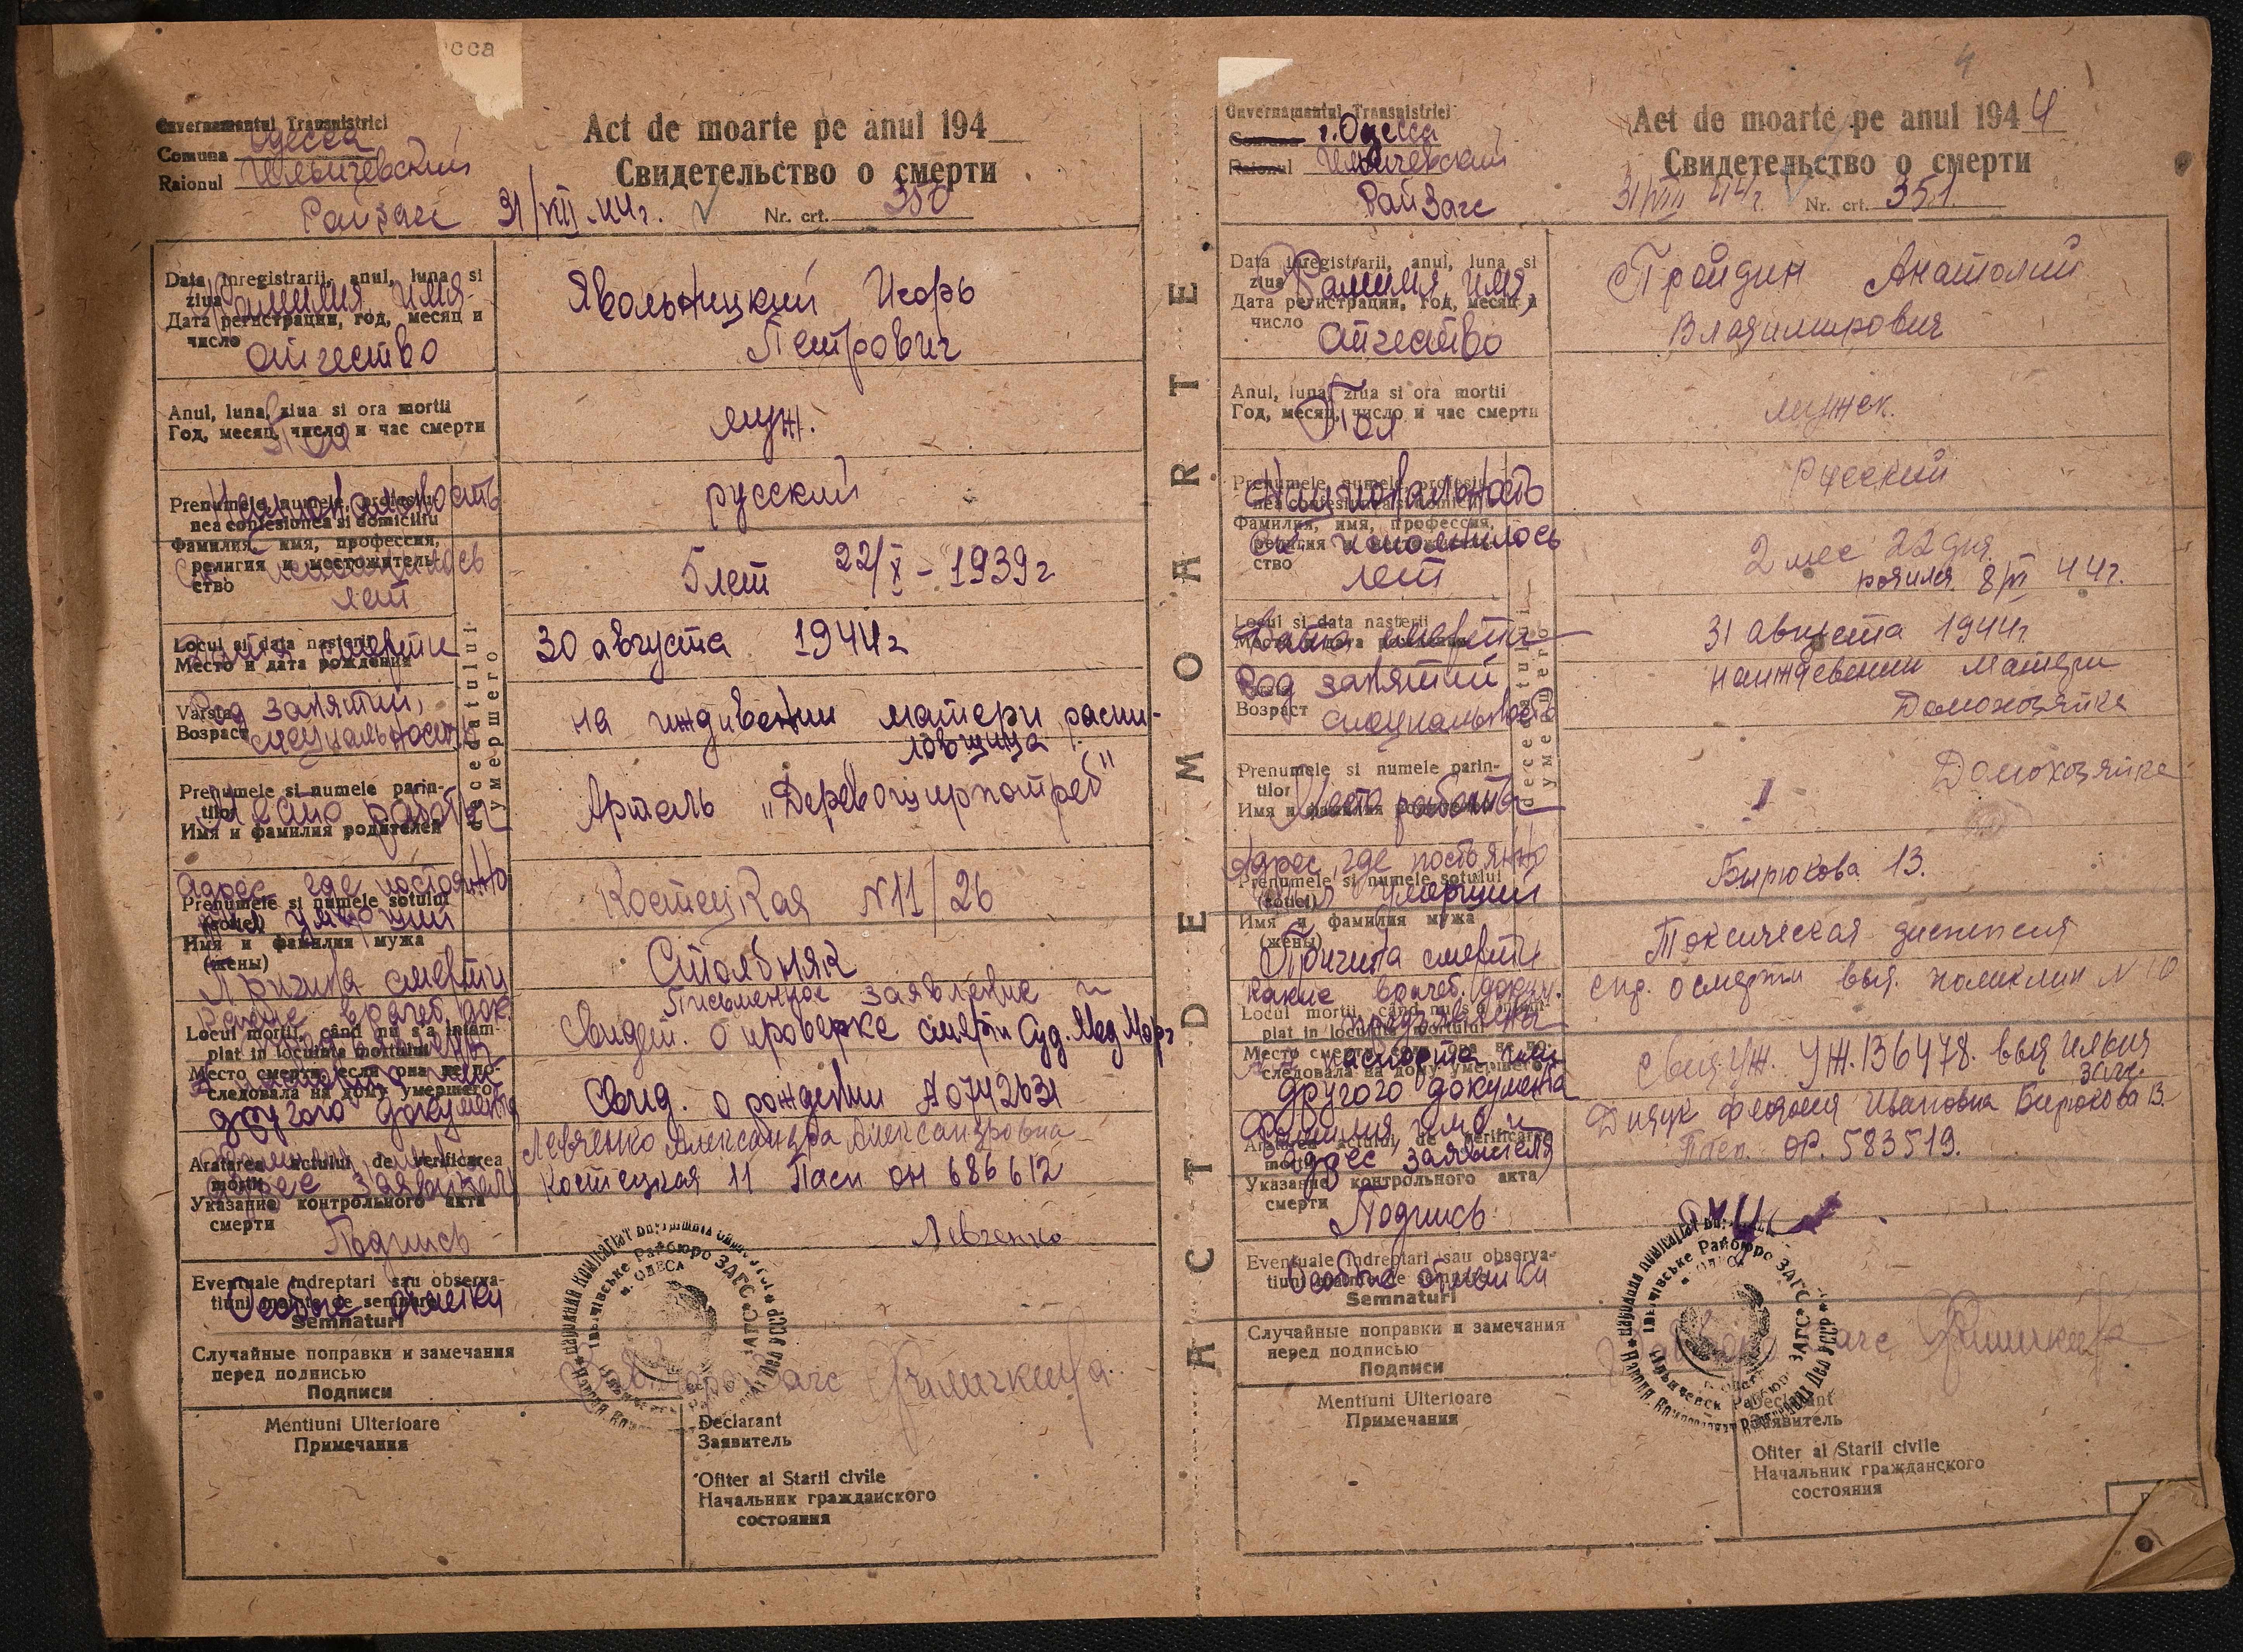 сса
Guvernamantul Transnistriei
Comuna Одесса
Raionul Ильичевский
Райзагс 31/VIII 44г.
Act de moarte pe anul 194
Свидетельство о смерти
Nr. crt. 350
Data inregistrarii, anul, luna si
ziua
Фамилия, имя
Дата регистрации, год, месяц и
число
отчество
Явольницкий Игорь
Петрович
Anul, luna, ziua si ora mortii
Год, месяц, число и час смерти
Пол
муж.
Prenumele numele profesiu-
nea confesiunea si domiciliu
Национальность
русский
Фамилия, имя, профессия,
религия и местожитель-
ство
лет
5 лет 22/X - 1939г
Locul si data nasterii
Место и дата рождения
Дата смерти
30 августа 1944г
Varsta
Возраст
Род занятий,
специальность
на иждивении матери распи-
ловщица
decedatului
умершего
Prenumele si numele parin-
tilor
Имя и фамилия родителей
Место работы
Артель „Деревоширпотреб"
Адрес, где постоянно
Prenumele si numele sotului
(sotiei)
жил умерший
Имя и фамилия мужа
(жены)
Костецкая N 11/26
Причина смерти
Столбняк
Какие врачеб. док.
Locul mortii, când nu s'a intâm-
plat in locuinta mortului
предъявлены
Письменное заявление и
Свидет. о проверке смерти Суд. Мед. Морг
Место смерти, если она не по-
следовала на дому умершего
другого документа
Свид. о рождении А0742631
Aratarea actului de verificarea
mortii
Указание контрольного акта
смерти
адрес заявителя
Левченко Александра Александровна
Костецкая 11 Пасп ОН 686612
Подпись
Левченко
Eventuale indreptari sau observa-
tiuni inainte de semnare
Semnaturi
Особые отметки
Случайные поправки и замечания
перед подписью
Подписи
Зав бюро Загс
Mentiuni Ulterioare
Примечания
Declarant
Заявитель
Ofiter al Starii civile
Начальник гражданского
состояния
Іллічівське Райбюро ЗАГС
м. ОДЕСА
ACT DE MOARTE
4
Guvernamantul Transnistriei
Comuna г. Одесса
Raionul Ильичевский
РайЗагс
Act de moarte pe anul 1944
Свидетельство о смерти
31/VIII 44г. Nr. crt. 351.
Data inregistrarii, anul, luna si
ziua
Фамилия, имя,
Дата регистрации, год, месяц и
число
Отчество
Гройдин Анатолий
Владимирович
Anul, luna, ziua si ora mortii
Год, месяц, число и час смерти
Пол
мужск.
Prenumele numele profesiu-
nea
Национальность
Русский
Фамилия, имя, профессия,
религия
ство
ск. исполнилось
лет
2 мес 22 дня.
родился 8/VI 44г.
Locul si data nasterii
Дата смерти
31 августа 1944г
Возраст
Род занятий
специальность
на иждевении матери
Домохозяйка
decedatului
умершего
Prenumele si numele parin-
tilor
Имя и фамилия родителей
Место работы
Домохозяйка
Адрес, где постоянно
Prenumele si numele sotului
(sotiei)
жил умерший
Имя и фамилия мужа
(жены)
Бирюкова 13.
Причина смерти
Токсическая диспепсия
Какие врачеб. докум.
Locul mortii, când nu s'a intâm-
plat in locuinta mortului
предъявлены
спр. о смерти выд. поликлин N 10
Место смерти, если она не по-
следовала на дому умершего
паспорта или
другого документа
Свид. УЖ. УЖ. 136478. выд Ильич
загс.
Фамилия имя и
адрес заявителя
Aratarea actului de verificarea
mortii
Указание контрольного акта
смерти
Ивановна Бирюкова 13.
Пасп. ОР. 583519.
Подпись
Eventuale indreptari sau observa-
tiuni inainte de semnare
Semnaturi
Особые отметки
Случайные поправки и замечания
перед подписью
Подписи
Загс
Mentiuni Ulterioare
Примечания
Declarant
Заявитель
Ofiter al Starii civile
Начальник гражданского
состояния
Іллічівське Райбюро ЗАГС